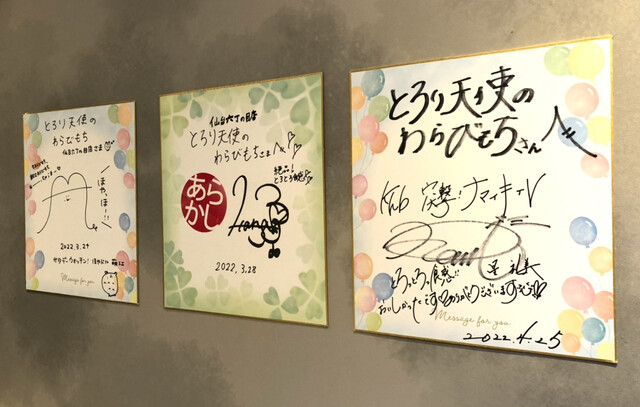 とろり天使の
わらびもち
仙台六丁の目店さま
ほや、ほー!!
2022.3.29
サタデーウォッチン!
Message for you
仙台六丁の目店
とろり天使の
わらびもちさまへ
絶品!
あらかし
2022.3.28
とろり天使の
わらびもちさんへ
khb 突撃!ナマイキTV
とろっとろっ食感で
おいしかったです
ありがとうございます
Message for you
2022.4.25